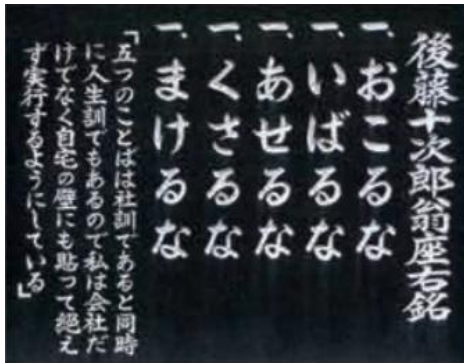 後藤十次郎翁座右銘
一、おこるな
一、いばるな
一、あせるな
一、くさるな
一、まけるな
「五つのことばは社訓であると同時
に人生訓でもあるので私は会社だ
けでなく自宅の壁にも貼って絶え
ず実行するようにしている」